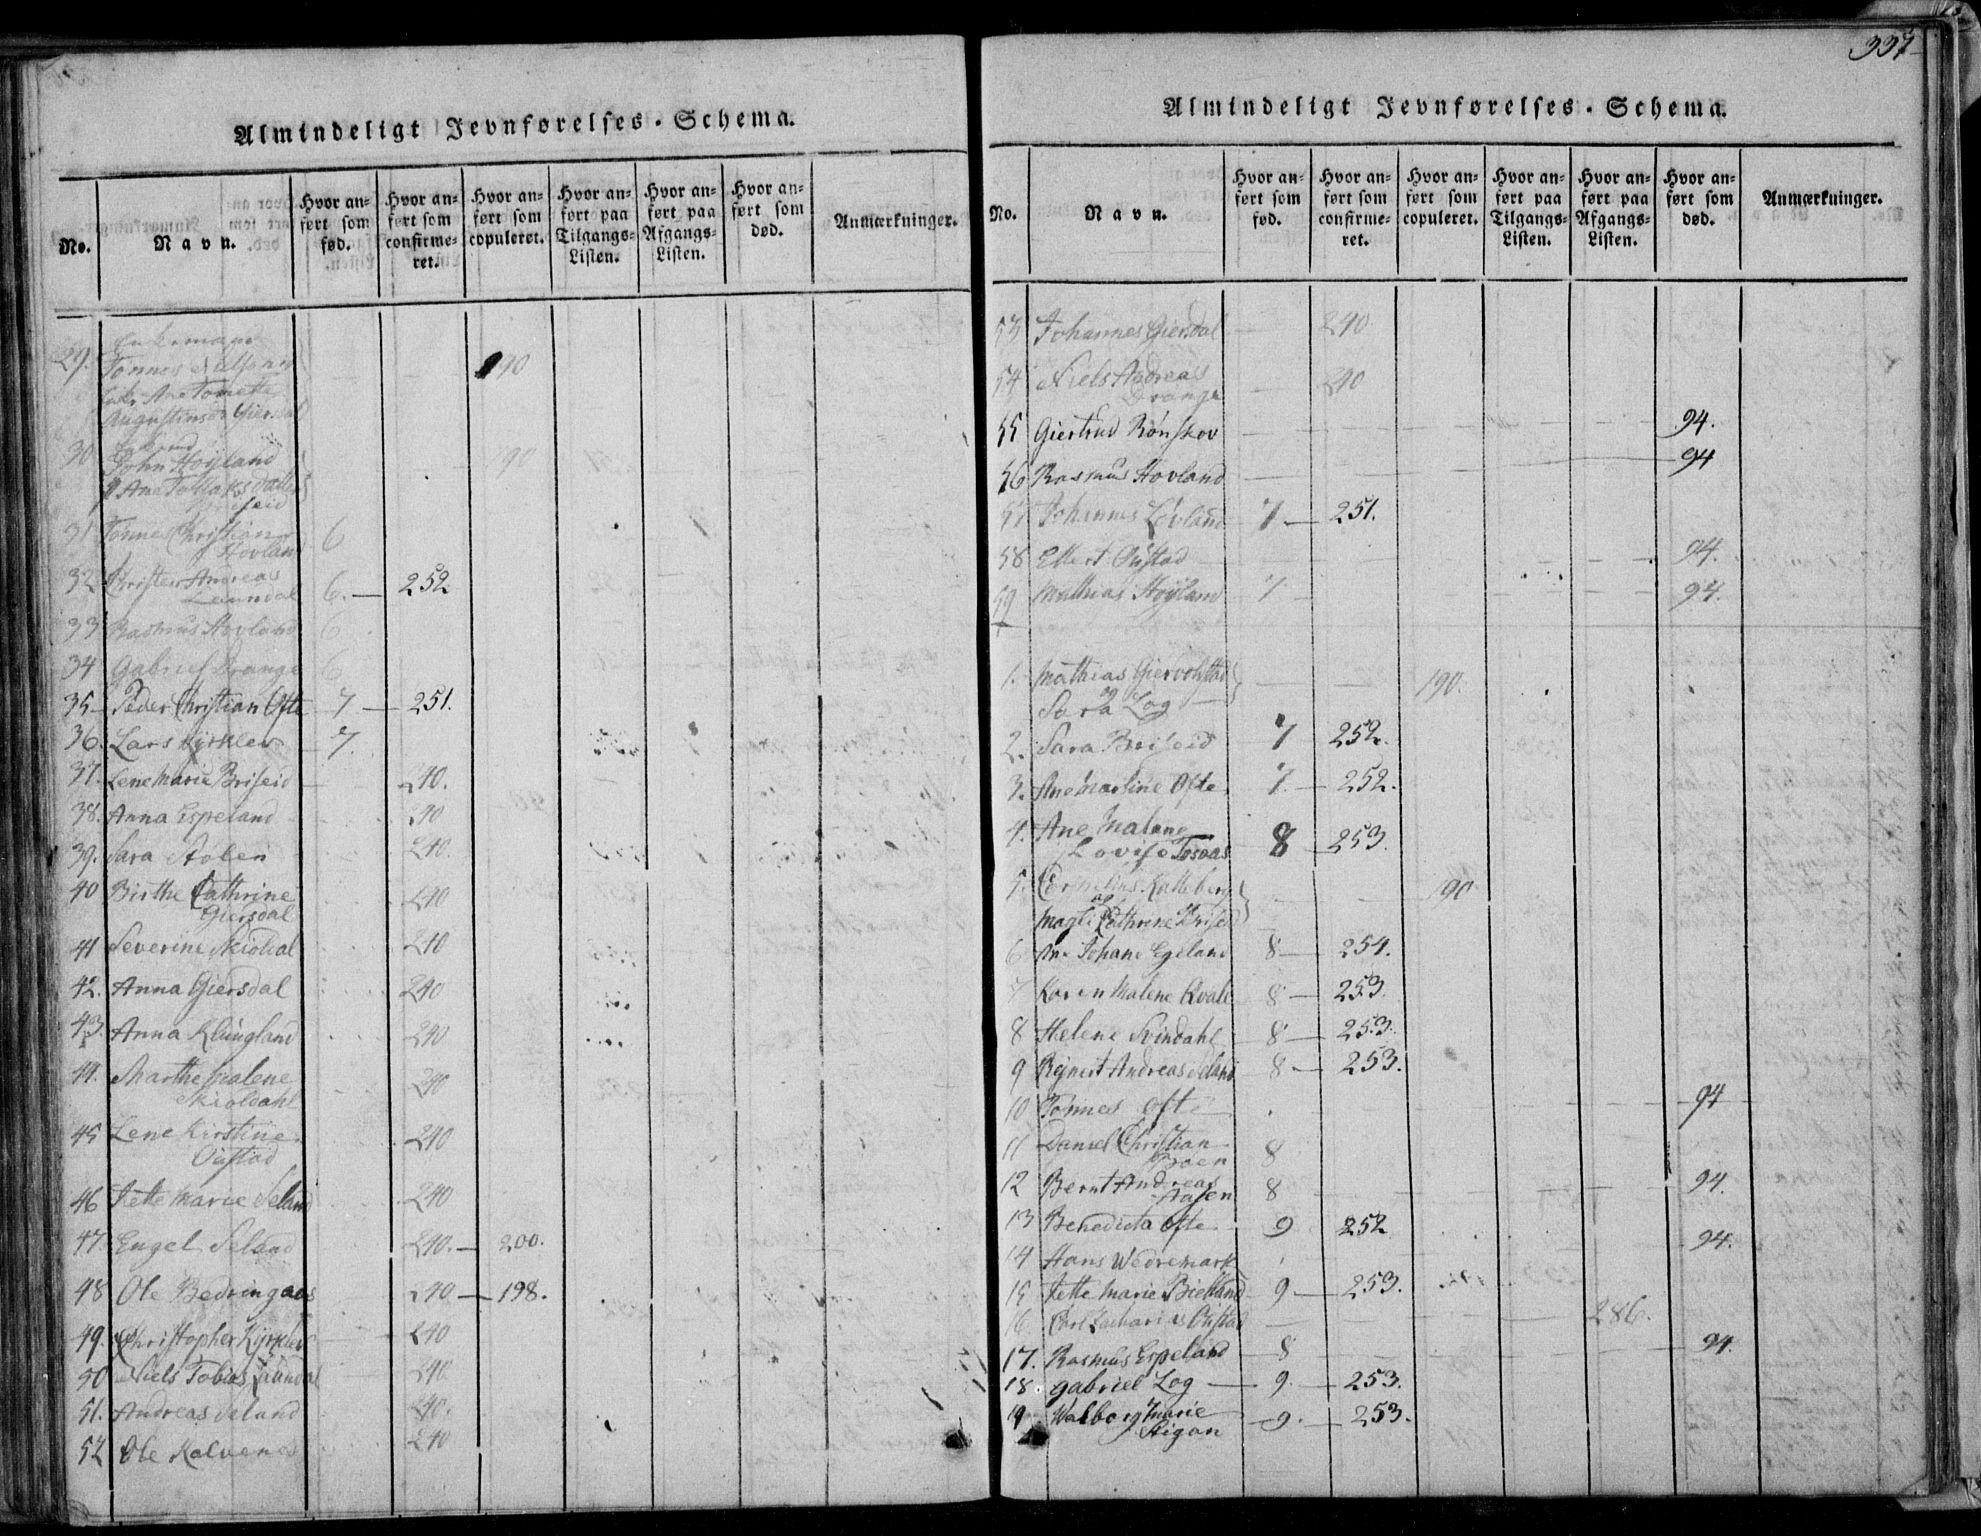 337
Almindeligt Jevnførelses-Schema.
No.
Navn.
Hvor anført som fød.
Hvor anført som confirmeret.
Hvor anført som copuleret.
Hvor anført paa Tilgangs-Listen.
Hvor anført paa Afgangs-Listen.
Hvor anført som død.
Anmærkninger.
29. Enkemand
Tønnes 190
Ane Tomette
Augustinsdr Giersdal
30 John Høyland 190
Briseid
31 Tønnes Christian
Hovland 6
32 Christen Andreas
Laundal 6. — 252
33 Rasmus Hovland 6
34 Gabriel Drange 6
35 Peder Christian Ofte 7 — 251.
36. Lars Kyrklev 7.
37. Lene Marie Briseid 240.
38. Anna Espeland 240
39. Sara Stølen 240.
40 Birthe Cathrine
Giersdal 240
41 Severine Skiøldal 240
42. Anna Giersdal 240
43. Anna Klungland 240
44. Marthe Malene
Skioldahl 240
45 Lene Kirstine
Oustad 240
46 Jette Marie Seland 240
47 Engel Seland 240. — 200.
48 Ole Bedringaas 240 — 198.
49. Christopher Kyrklev 240
50 Niels Tobias Laundal 240
51. Andreas Seland 240.
52 Ole Kalvenes 240
Almindeligt Jevnførelses-Schema.
No.
Navn.
Hvor anført som fød.
Hvor anført som confirmeret.
Hvor anført som copuleret.
Hvor anført paa Tilgangs-Listen.
Hvor anført paa Afgangs-Listen.
Hvor anført som død.
Anmærkninger.
53 Johannes Giersdal 240
54 Niels Andreas
Drange 240
55 Giertrud Rønskov 94.
56 Rasmus Hovland 94
57 Johannes Løvland 7 — 251.
58 Ellert Oustad 94.
59 Mathias Høyland 7 94.
1. Mathias Giervoldstad
og
Sara Log 190.
2. Sara Briseid 7 252.
3. Ane Martine Ofte 7. — 252.
4. Ane Malene
Lovise Tosaas 8 — 253.
5. Cornelius Kalleberg
og 190
Magli Cathrine Briseid
6 Ane Johane Egeland 8 — 254.
7 Karen Malene Qvale 8 — 253.
8 Helene Svindahl 8 — 253.
9 Rejnert Andreas Seland 8 — 253.
10 Tønnes Ofte 94
11 Daniel Christian
Moen 8
12 Bernt Andreas
Aasen 8 94.
13 Benedicta Ofte 9 252
14 Hans Wedremark 94.
15 Jette Marie Bielland 9 — 253.
16. Carl Zacharias Oustad 286.
17. Rasmus Espeland 8 94.
18. Gabriel Log 9. — 253.
19 Walborg Marie
Stigan 9. — 253.